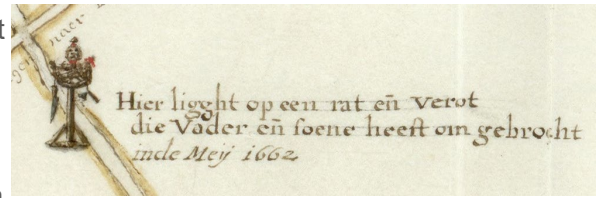 t
naer
Hier ligght op een rat en̄ verot
die Vader en̄ soene heeft om gebrocht
inde Meij 1662